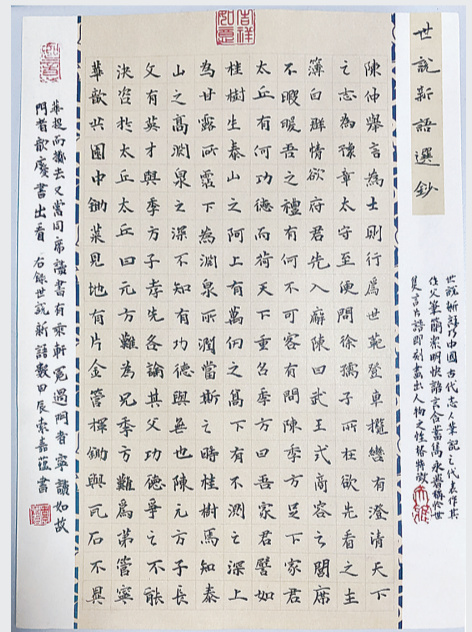 吉祥
如意
世說新語選鈔
世說新語乃中国古代志人筆記之代表作其
作文筆簡潔明快語言含蓄雋永著稱於世
隻言片語即刻畫出人物之性格特徵
陳仲舉言為士則行為世範登車攬轡有澄清天下
之志為豫章太守至便問徐孺子所在欲先看之主
簿白群情欲府君先入廨陳曰武王式商容之閭席
不暇暖吾之禮有何不可客有問陳季方足下家君
太丘有何功德而荷天下重名季方曰吾家君譬如
桂樹生泰山之阿上有萬仞之高下有不測之深上
為甘露所霑下為淵泉所潤當斯之時桂樹焉知泰
山之高淵泉之深不知有功德與無也陳元方子長
文有英才與季方子孝先各論其父功德爭之不能
決咨於太丘太丘曰元方難為兄季方難為弟管寧
華歆共園中鋤菜見地有片金管揮鋤與瓦石不異
華捉而擲去又嘗同席讀書有乘軒冕過門者寧讀如故
門者歆廢書出看 右錄世說新語數甲辰嘉書